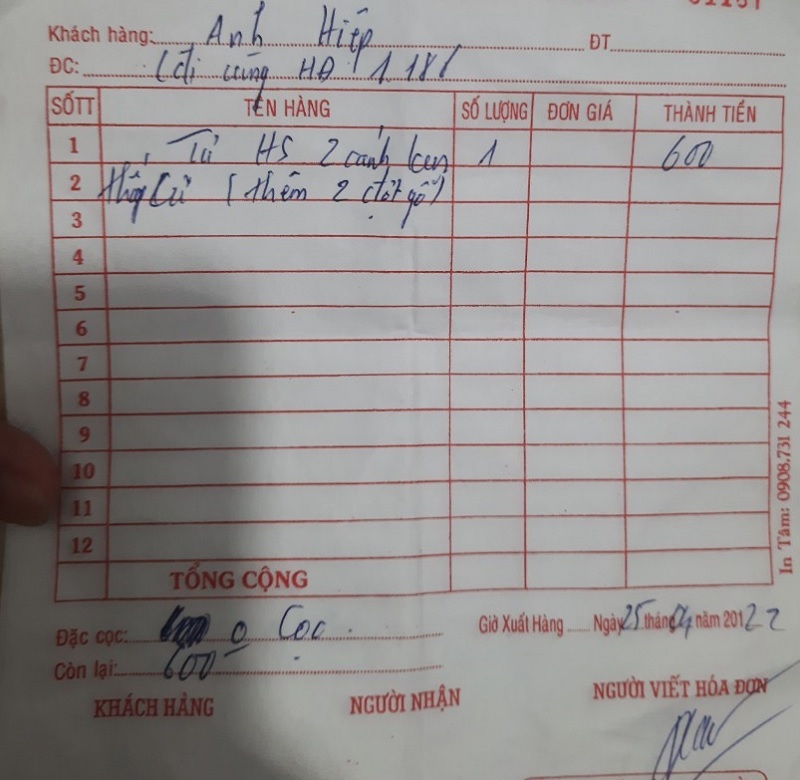 Khách hàng: Anh Hiệp ĐT
ĐC: (đi cùng HĐ 1.181
SỐTT TÊN HÀNG SỐ LƯỢNG ĐƠN GIÁ THÀNH TIỀN
1 Tủ HS 2 cánh 1 600
2 (thêm 2 đợt gỗ)
3
4
5
6
7
8
9
10
11
12
TỔNG CỘNG
Đặc cọc: 0 Cọc.
Giờ Xuất Hàng Ngày 25 tháng 04 năm 2012 2
Còn lại: 600
KHÁCH HÀNG NGƯỜI NHẬN NGƯỜI VIẾT HÓA ĐƠN
In Tâm: 0908.731 244